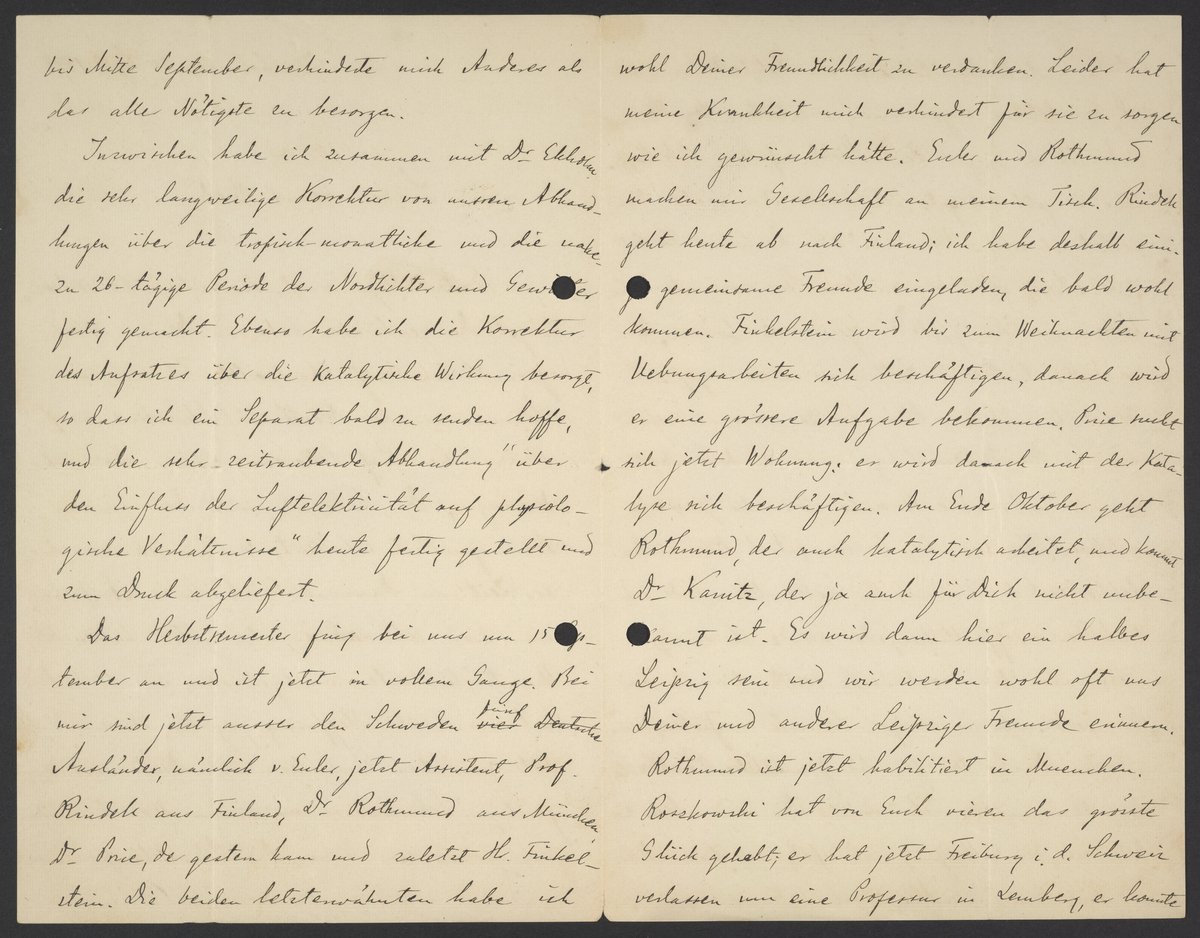 bis Mitte September, verhinderte mich Anderes als
das alle Nötigste zu besorgen.
Inzwischen habe ich zusammen mit Dr Ekholm
die sehr langweilige Korrektur von unsren Abhand-
lungen über die tropisch-monatliche und die nahe-
zu 26-tägige Periode der Nordlichter und Gewitter
fertig gemacht. Ebenso habe ich die Korrektur
des Aufsatzes über die katalytische Wirkung besorgt,
so dass ich ein Separat bald zu senden hoffe,
und die sehr zeitraubende Abhandlung "über
den Einfluss der Luftelektricität auf physiolo-
gische Verhältnisse" heute fertig gestellt und
zum Druck abgeliefert.
Das Herbstsemester fing bei uns um 15 Sep-
tember an und ist jetzt in vollem Gange. Bei
mir sind jetzt ausser den Schweden vier fünf Deutsche
Ausländer, nämlich v. Euler, jetzt Assistent, Prof.
Rindell aus Finland, Dr Rothmund aus München,
Dr Price, de gestern kam und zuletzt Hr. Finkel-
stein. Die beiden letzterwähnten habe ich
wohl Deiner Freundlichkeit zu verdanken. Leider hat
meine Krankheit mich verhindert für sie zu sorgen
wie ich gewünscht hätte. Euler und Rothmund
machen mir Gesellschaft an meinem Tisch. Rindell
geht heute ab nach Finland; ich habe deshalb eini-
ge gemeinsame Freunde eingeladen, die bald wohl
kommen. Finkelstein wird bis zum Weihnachten mit
Uebungsarbeiten sich beschäftigen, danach wird
er eine grössere Aufgabe bekommen. Price sucht
sich jetzt Wohnung; er wird danach mit der Kata-
lyse sich beschäftigen. Am Ende Oktober geht
Rothmund, der auch katalytisch arbeitet, und kommt
Dr Kanitz, der ja auch für Dich nicht unbe-
kannt ist. Es wird dann hier ein halbes
Leipzig sein und wir werden wohl oft uns
Deiner und anderer Leipziger Freunde erinnern.
Rothmund ist jetzt habilitiert in Muenchen.
Roszkowski hat von Euch vieren das grösste
Glück gehabt; er hat jetzt Freiburg i. d. Schweiz
verlassen um eine Professur in Lemberg, er konnte